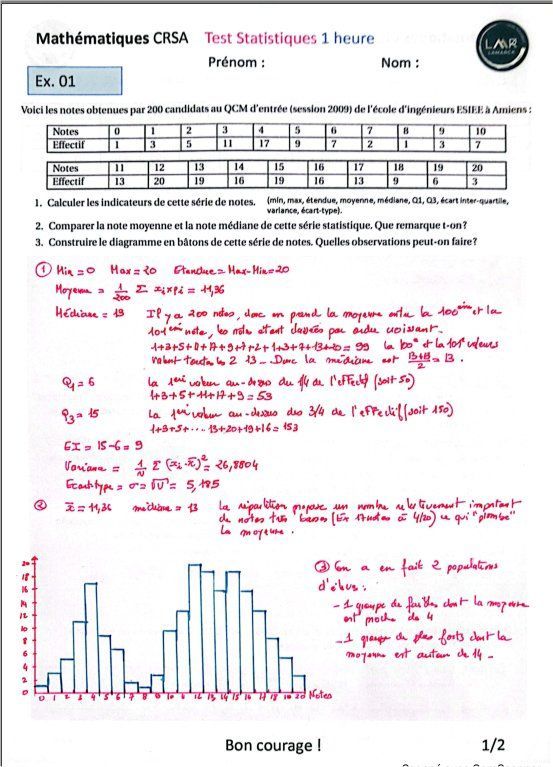 Mathématiques CRSA Test Statistiques 1 heure
LMR
LAMARCK
Prénom : Nom :
Ex. 01
Voici les notes obtenues par 200 candidats au QCM d'entrée (session 2009) de l'école d'ingénieurs ESIEE à Amiens :
Notes 0 1 2 3 4 5 6 7 8 9 10
Effectif 1 3 5 11 17 9 7 2 1 3 7
Notes 11 12 13 14 15 16 17 18 19 20
Effectif 13 20 19 16 19 16 13 9 6 3
1. Calculer les indicateurs de cette série de notes. (min, max, étendue, moyenne, médiane, Q1, Q3, écart inter-quartile,
variance, écart-type).
2. Comparer la note moyenne et la note médiane de cette série statistique. Que remarque t-on?
3. Construire le diagramme en bâtons de cette série de notes. Quelles observations peut-on faire?
① Min = 0 Max = 20 Etendue = Max-Min = 20
Moyenne = 1/200 Σ xi × pi = 11,36
Médiane = 13 Il y a 200 notes, donc on prend la moyenne entre la 100 et la
101 note, les notes étant classées par ordre croissant.
1+3+5+11+17+9+7+2+1+3+7+13+20 = 99 la 100e et la 101e valeurs
valent toutes les 2 13 _ Donc la médiane est (13+13)/2 = 13.
Q1 = 6 la 1ère valeur au-dessus du 1/4 de l'effectif (soit 50)
1+3+5+11+17+9 = 53
Q3 = 15 La 1ère valeur au-dessus des 3/4 de l'effectif (soit 150)
1+3+5+ .... 13+20+19+16 = 153
EX = 15-6 = 9
Variance = 1/N Σ (xi - x̄)² = 26,8804
Ecart type = σ = √V = 5,185
② x̄ = 11,36 médiane = 13 La répartition propose un nombre relativement important
de notes très basses (Ex 17 notes à 4/20) ce qui "plombe"
la moyenne.
③ On a en fait 2 populations
d'élèves :
- 1 groupe de faibles dont la moyenne
est proche de 4
- 1 groupe de plus forts dont la
moyenne est autour de 14 _
20
18
16
14
12
10
8
6
4
2
0
0 1 2 3 4 5 6 7 8 9 10 11 12 13 14 15 16 17 18 19 20 Notes
Bon courage ! 1/2